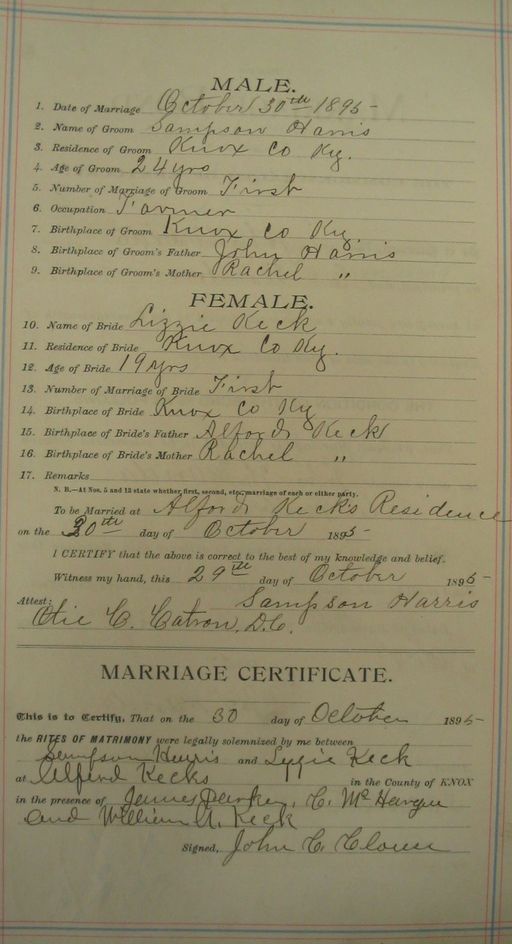 MALE.
1. Date of Marriage October 30th 1895-
2. Name of Groom Sampson Harris
3. Residence of Groom Knox Co Ky.
4. Age of Groom 24 yrs
5. Number of Marriage of Groom First
6. Occupation Farmer
7. Birthplace of Groom Knox Co Ky.
8. Birthplace of Groom's Father John Harris
9. Birthplace of Groom's Mother Rachel "
FEMALE.
10. Name of Bride Lizzie Keck
11. Residence of Bride Knox Co Ky.
12. Age of Bride 19 yrs
13. Number of Marriage of Bride First
14. Birthplace of Bride Knox Co Ky
15. Birthplace of Bride's Father Alford Keck
16. Birthplace of Bride's Mother Rachel "
17. Remarks
N. B.—At Nos. 5 and 13 state whether first, second, etc., marriage of each or either party.
To be Married at Alford Keck's Residence
on the 30th day of October 1895-
I CERTIFY that the above is correct to the best of my knowledge and belief.
Witness my hand, this 29th day of October 1895-
Sampson Harris
Attest: Otie C. Catron, D.C.
MARRIAGE CERTIFICATE.
This is to Certify, That on the 30 day of October 1895-
the RITES OF MATRIMONY were legally solemnized by me between
Sampson Harris and Lizzie Keck
at Alferd Kecks in the County of KNOX
in the presence of James Parker, C. McHargue
and William A. Keck
Signed, John C. Clouse